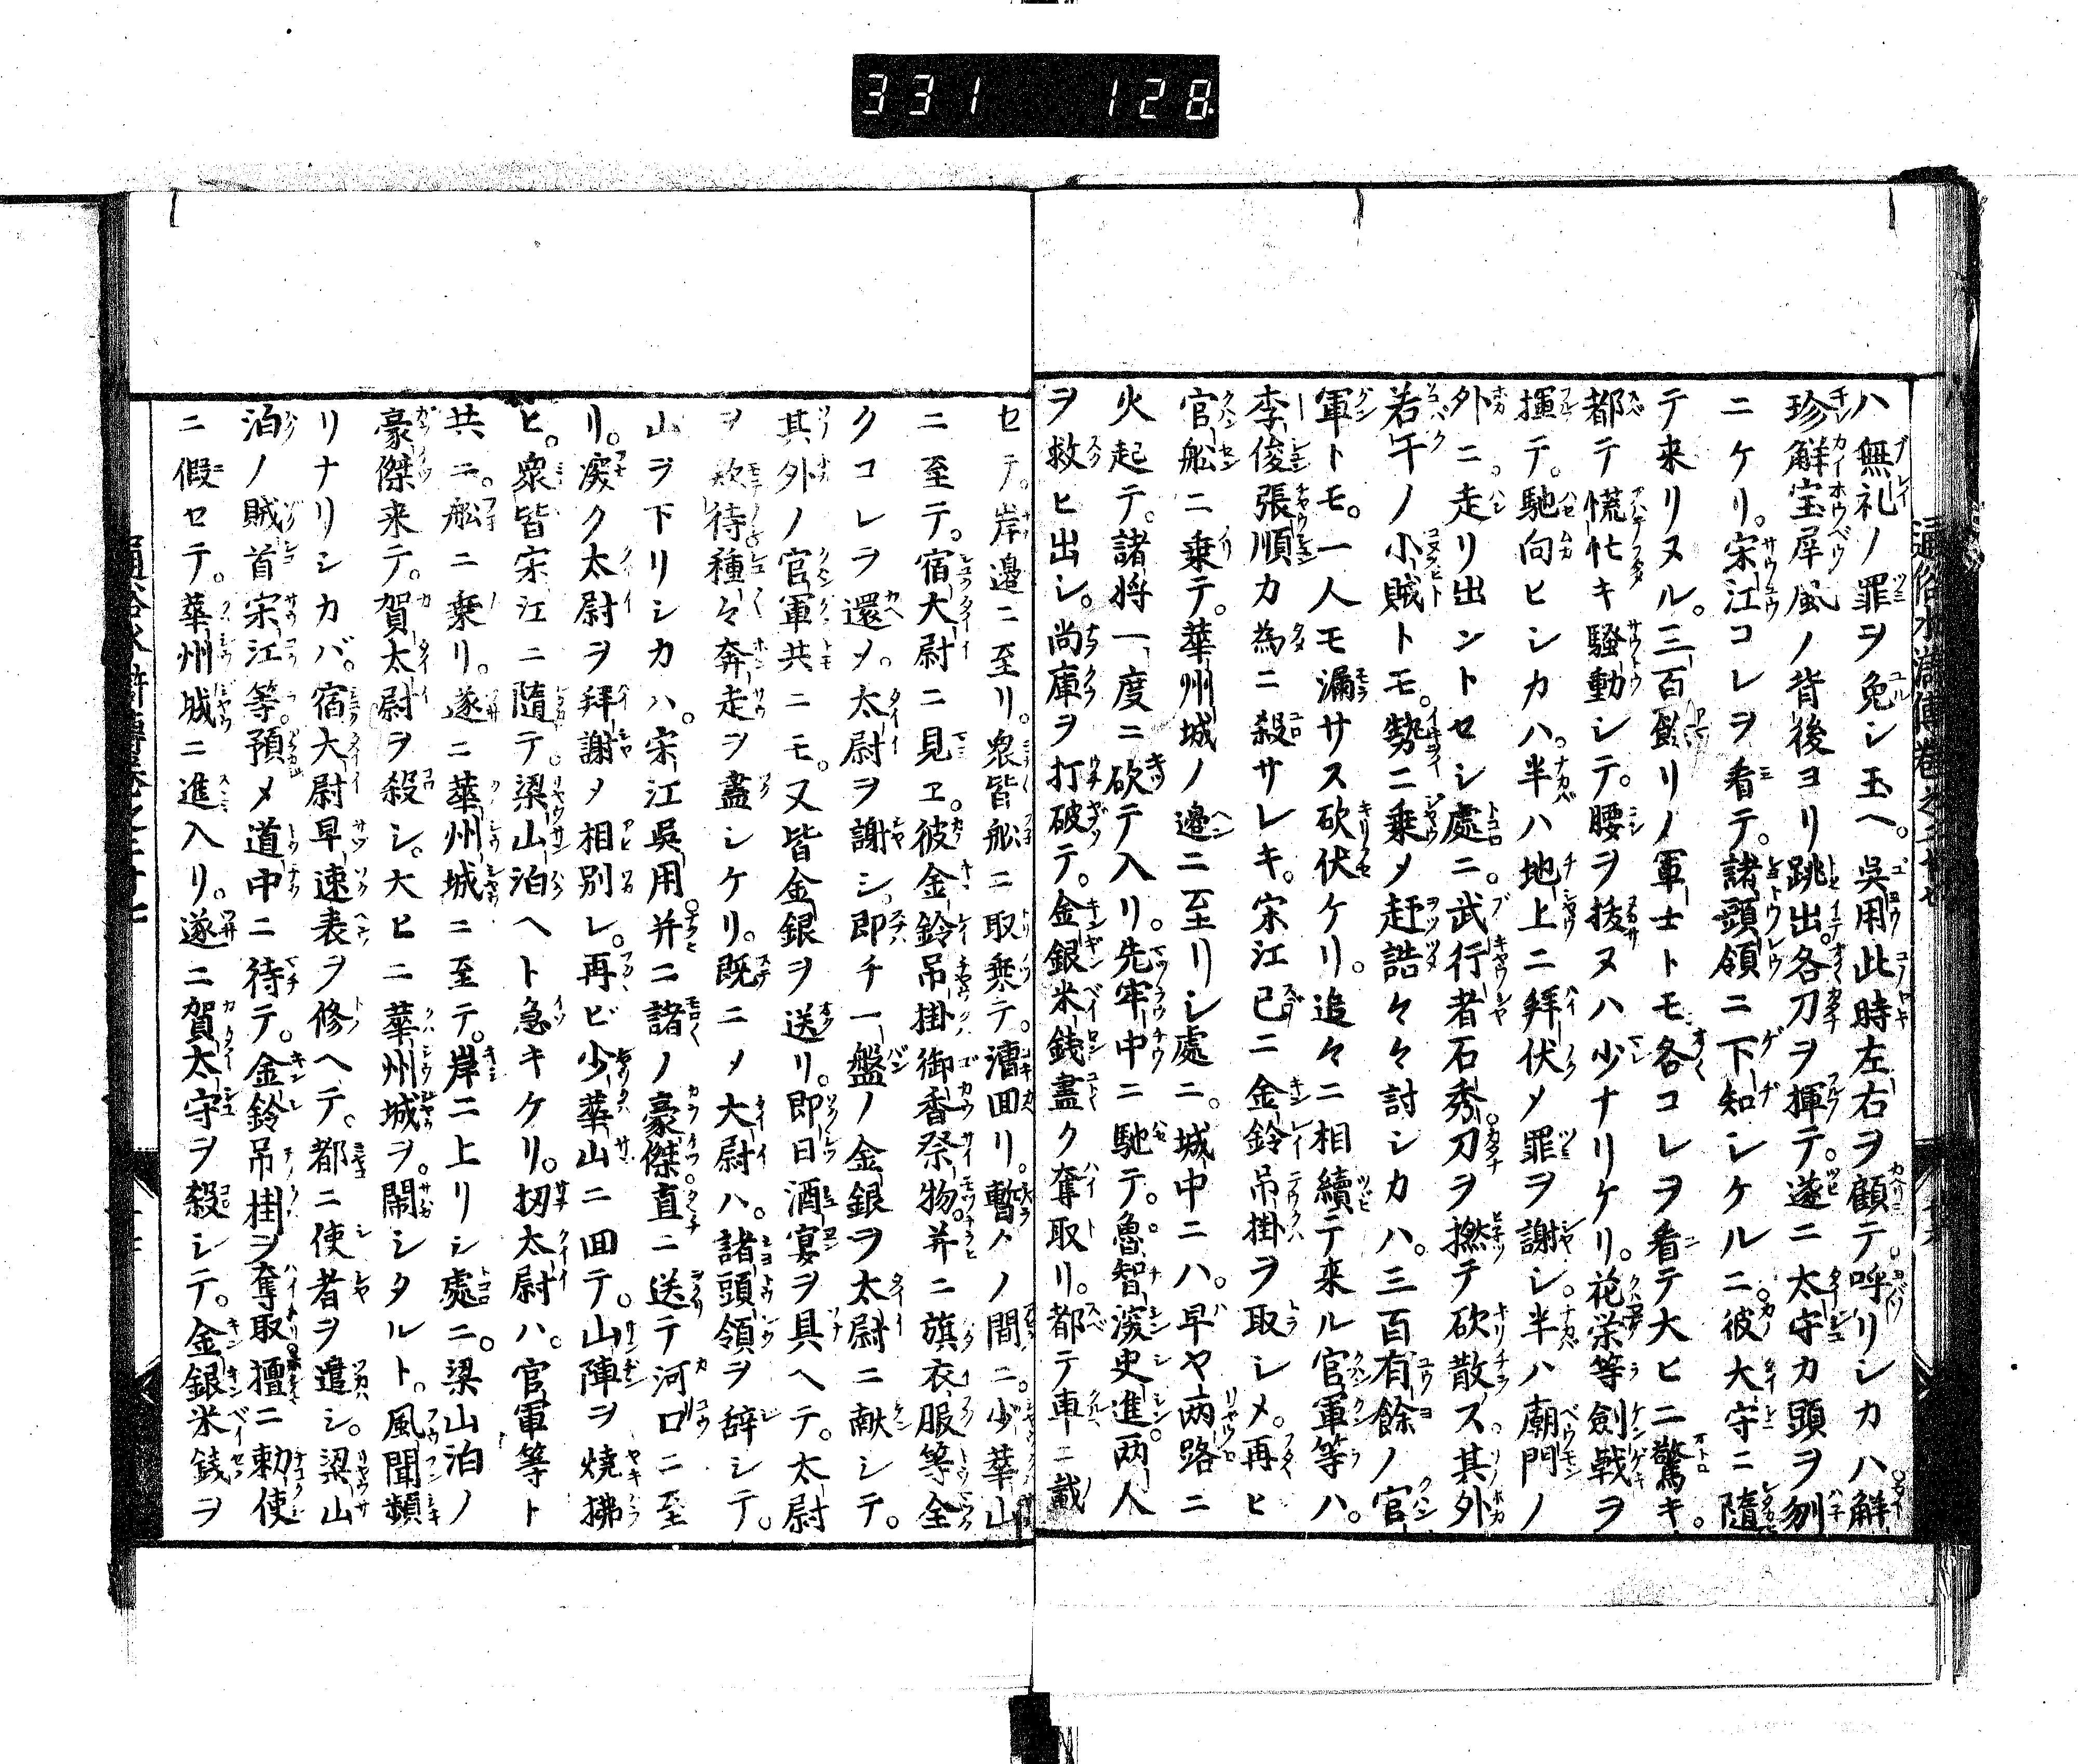 331 128
ハ無礼ノ罪ヲ免シ玉ヘ。呉用此時左右ヲ顧テ呼リシカハ解
珍解宝屏風ノ背後ヨリ跳出。各刀ヲ揮テ。遂ニ太守カ頭ヲ刎
ニケリ。宋江コレヲ看テ。諸頭領ニ下知シケルニ。彼大守ニ隨
テ来リヌル。三百餘リノ軍士トモ各コレヲ看テ大ヒニ驚キ。
都テ慌忙キ騒動シテ。腰ヲ抜ヌハ少ナリケリ。花栄等劍戟ヲ
揮テ。馳向ヒシカハ。半ハ地上ニ拜伏メ罪ヲ謝シ。半ハ廟門ノ
外ニ。走リ出ントセシ處ニ。武行者石秀。刀ヲ撚テ砍散ス。其外
若干ノ小賊トモ。勢ニ乗メ赶詰々々討シカハ。三百有餘ノ官
軍トモ。一人モ漏サス砍伏ケリ。追々ニ相續テ来ル官軍等ハ。
李俊張順カ為ニ殺サレキ。宋江已ニ金鈴吊掛ヲ取シメ。再ヒ
官舩ニ乗テ。華州城ノ邉ニ至リシ處ニ。城中ニハ。早ヤ両路ニ
火起テ。諸将一度ニ砍テ入リ。先牢中ニ馳テ。魯智深史進両人
ヲ救ヒ出シ。尚庫ヲ打破テ。金銀米銭盡ク奪取リ。都テ車ニ載
セテ。岸邉ニ至リ。衆皆舩ニ取乗テ。漕囬リ。暫クノ間ニ。少華山
ニ至テ。宿大尉ニ見ヱ。彼金鈴吊掛御香祭物。并ニ旗衣服等全
クコレヲ還メ。太尉ヲ謝シ。即チ一盤ノ金銀ヲ太尉ニ献シテ。
其外ノ官軍共ニモ。又皆金銀ヲ送リ。即日酒宴ヲ具ヘテ。太尉
ヲ欵待種々奔走ヲ盡シケリ。既ニメ大尉ハ。諸頭領ヲ辞シテ。
山ヲ下リシカハ。宋江呉用。并ニ諸ノ豪傑直ニ送テ河口ニ至
リ。深ク太尉ヲ拜謝メ相別レ。再ビ少華山ニ囬テ。山陣ヲ焼拂
ヒ。衆皆宋江ニ隨テ。梁山泊ヘト急キケリ。扨太尉ハ。官軍等ト
共ニ。舩ニ乗リ。遂ニ華州城ニ至テ。岸ニ上リシ處ニ。梁山泊ノ
豪傑来テ。賀太尉ヲ殺シ。大ヒニ華州城ヲ。閙シタルト。風聞頻
リナリシカバ。宿大尉早速表ヲ修ヘテ。都ニ使者ヲ遣シ。梁山
泊ノ賊首宋江等。預メ道中ニ待テ。金鈴吊掛ヲ奪取擅ニ勅使
ニ假セテ。華州城ニ進入リ。遂ニ賀太守ヲ殺シテ。金銀米銭ヲ